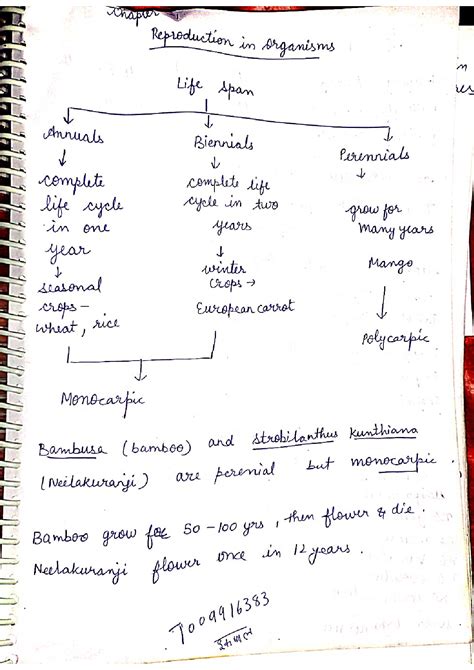 Chapter
Reproduction in Organisms
Life span
Annuals
Biennials
Perennials
complete
life cycle
in one
year
complete life
cycle in two
years
grow for
Many years
seasonal
crops -
wheat, rice
winter
Crops →
European carrot
Mango
Polycarpic
Monocarpic
Bambusa (bamboo) and Strobilanthus Kunthiana
(Neilakuranji) are perenial but monocarpic.
Bamboo grow for 50-100 yrs, then flower & die.
Neelakuranji flower once in 12 years.
7009916383